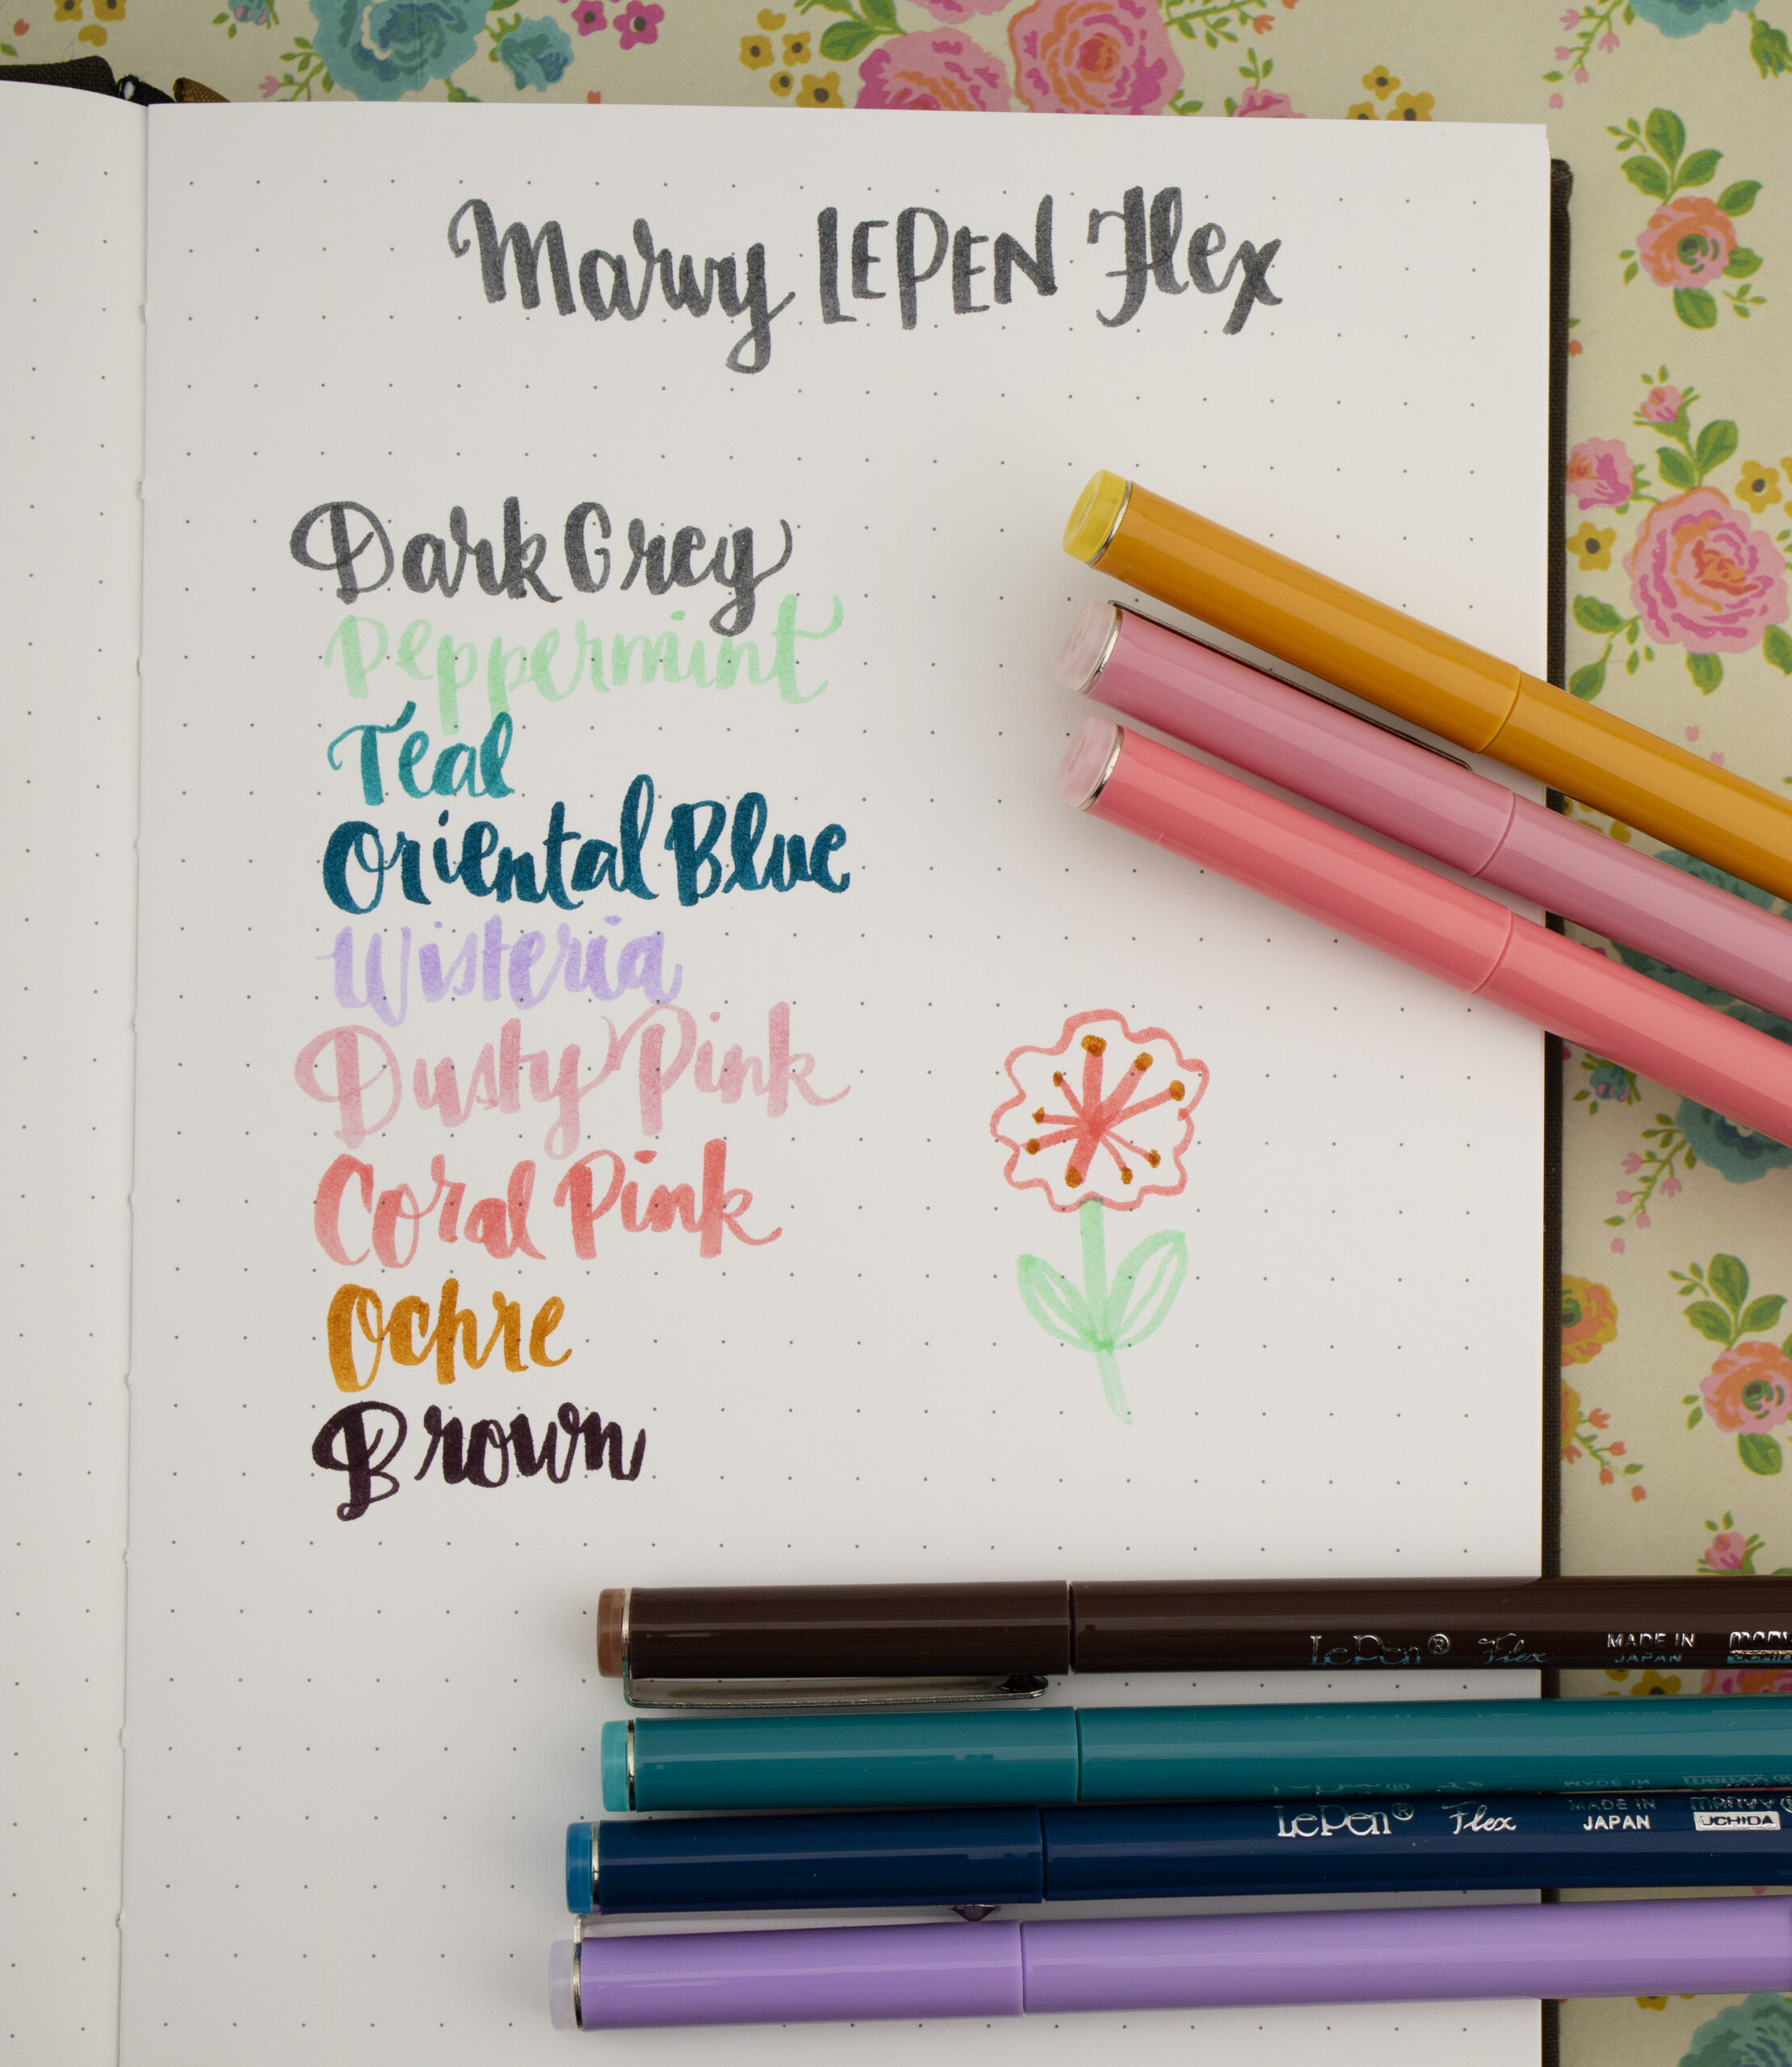 Marvy LEPEN Flex
Dark Grey
Peppermint
Teal
Oriental Blue
Wisteria
Dusty Pink
Coral Pink
Ochre
Brown
LePen® Flex MADE IN JAPAN
LePen® Flex MADE IN JAPAN marvy® UCHIDA